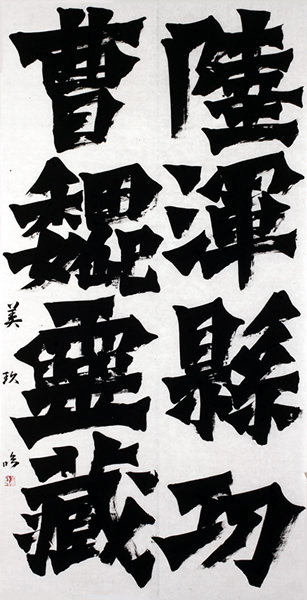 陸渾縣功
曹魏靈藏
美玖